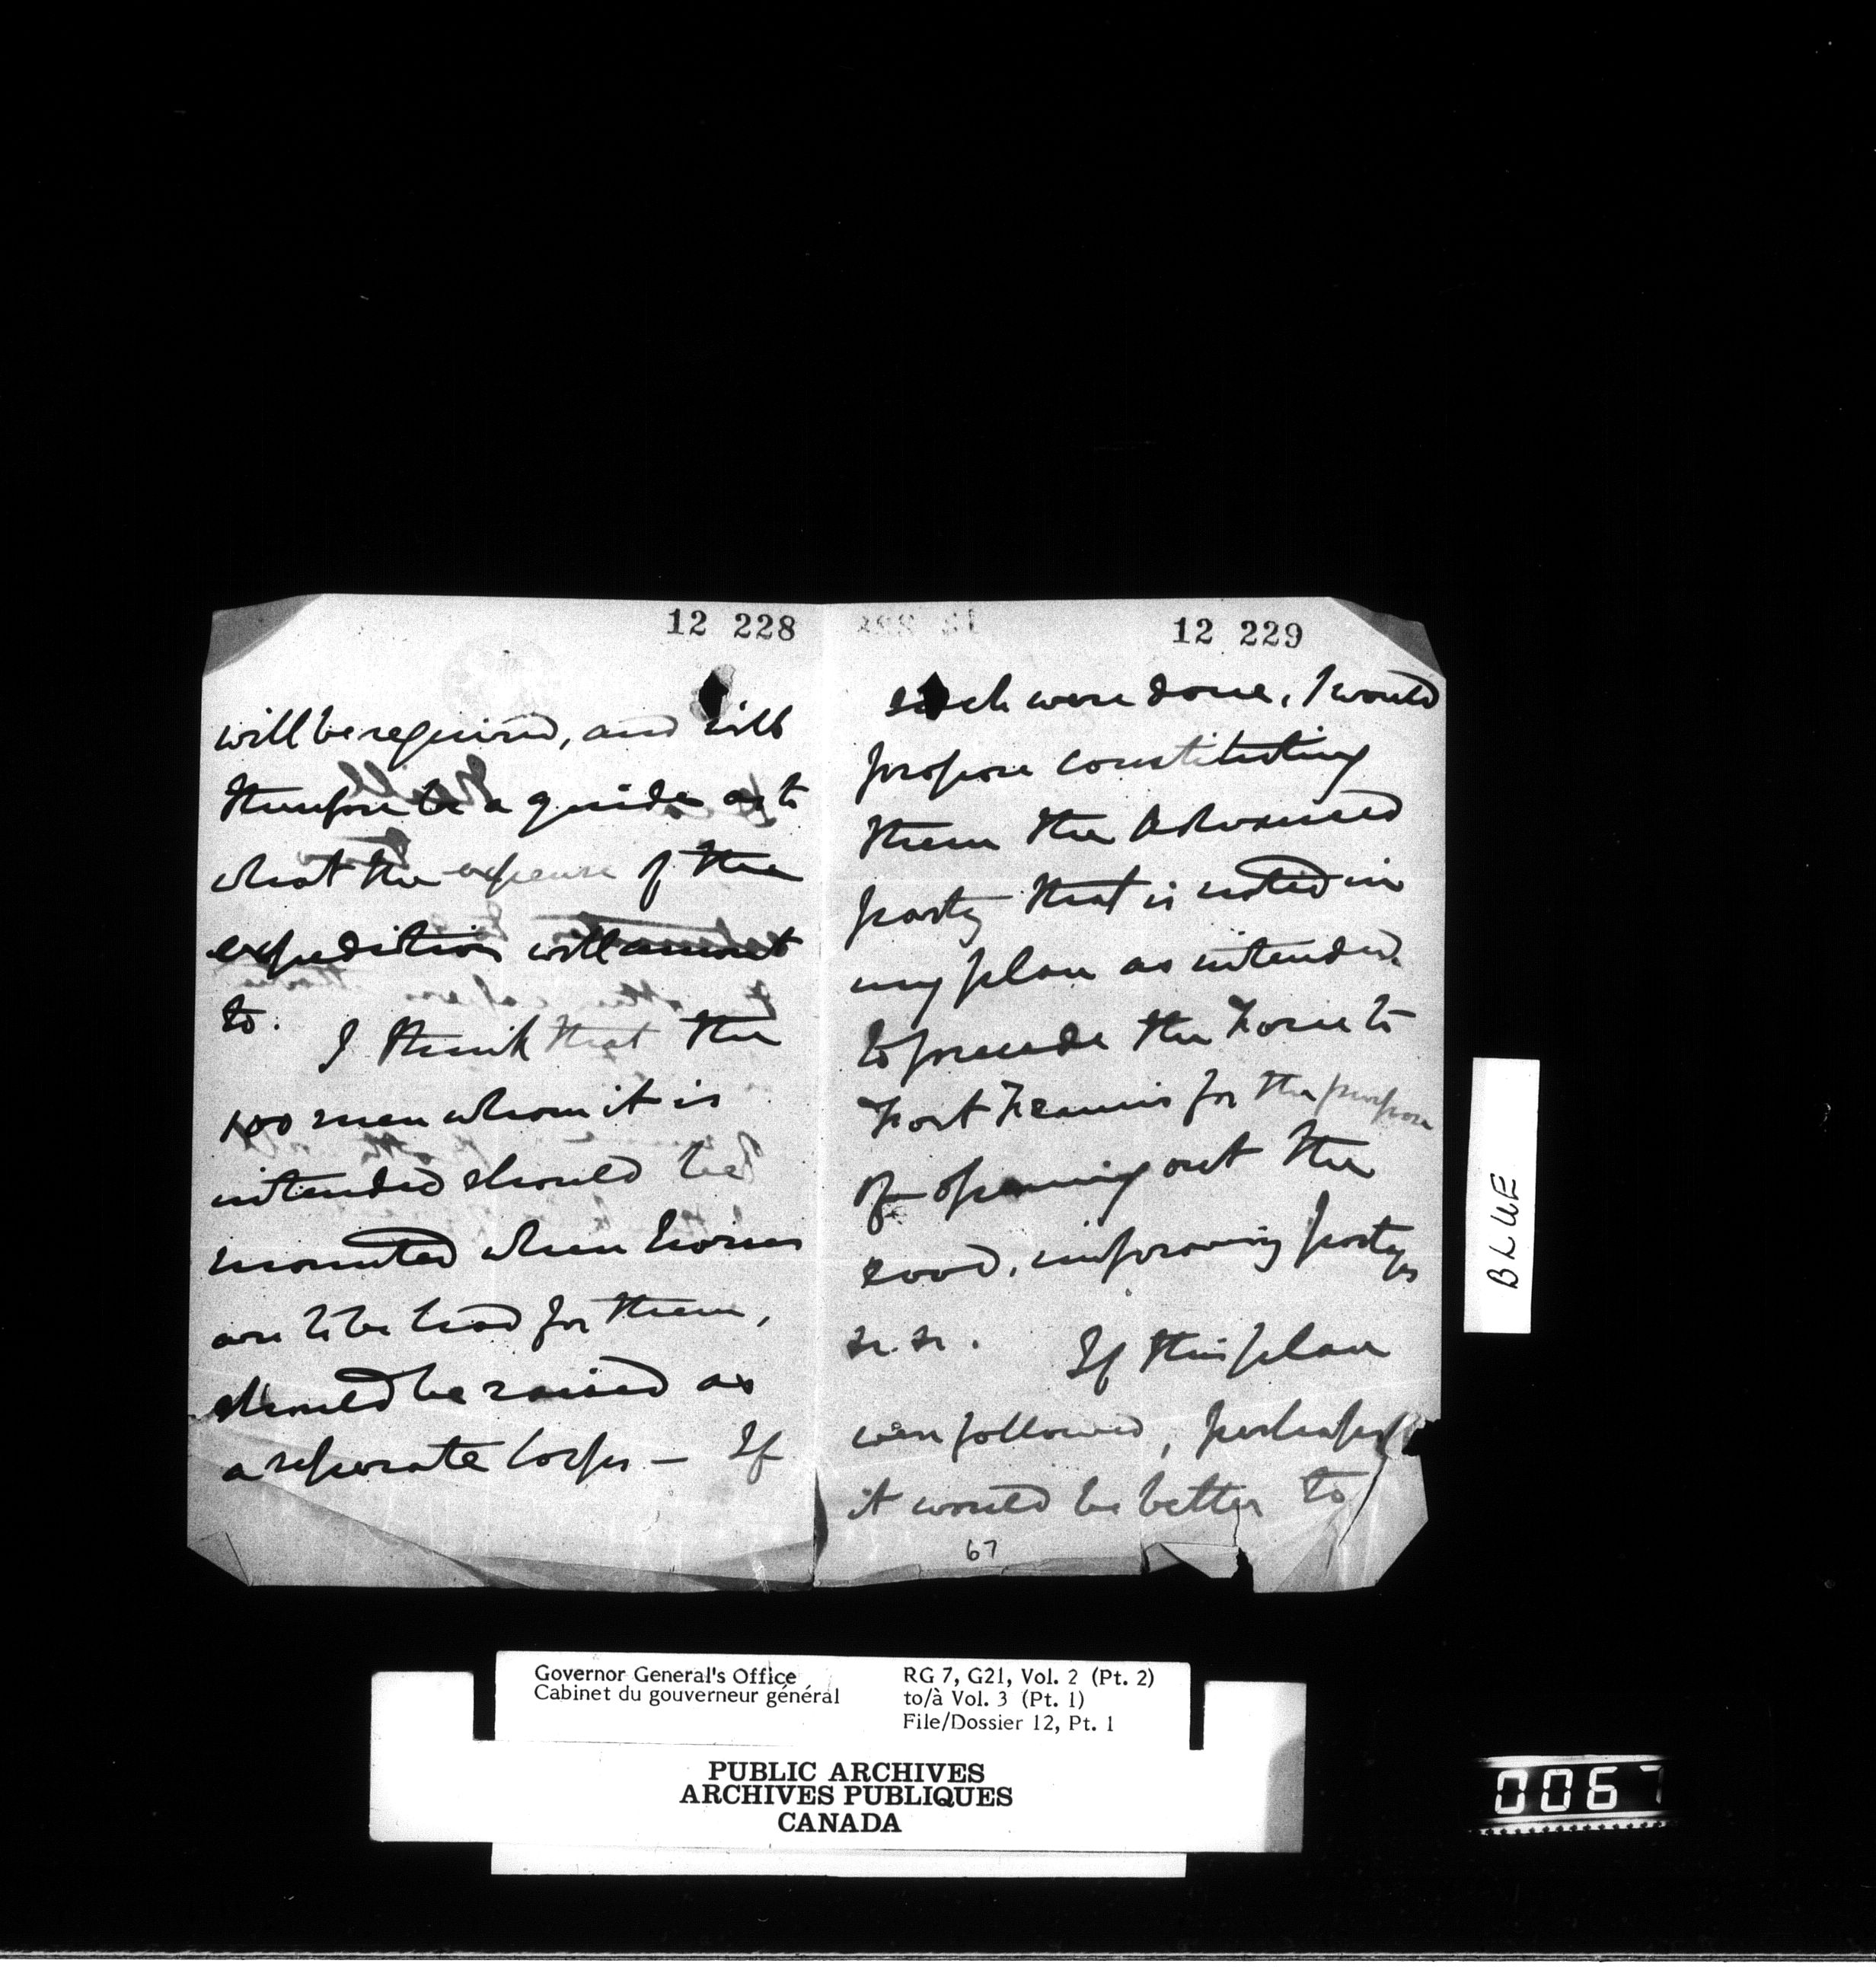 12 228
will be required, and will
therefore be a guide as to
what the expense of the
expedition will amount
to. I think that the
100 men whom it is
intended should be
mounted when horses
are to be had for them,
should be raised as
a separate Corps — If
12 229
such were done, I would
propose constituting
them the Advanced
party that is noted in
my plan as intended
to precede the Force to
Fort Francis for the purpose
of opening out the
road, improving portages
&c. &c. If this plan
were followed, perhaps
it would be better to
67
BLUE
Governor General's Office
Cabinet du gouverneur général
RG 7, G21, Vol. 2 (Pt. 2)
to/à Vol. 3 (Pt. 1)
File/Dossier 12, Pt. 1
PUBLIC ARCHIVES
ARCHIVES PUBLIQUES
CANADA
0067